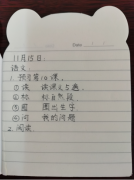 11月15日:
语文
1. 预习第14课。
① 读 读课文5遍。
② 标 标自然段
③ 圈 圈出生字
④ 问 我的问题
2. 阅读